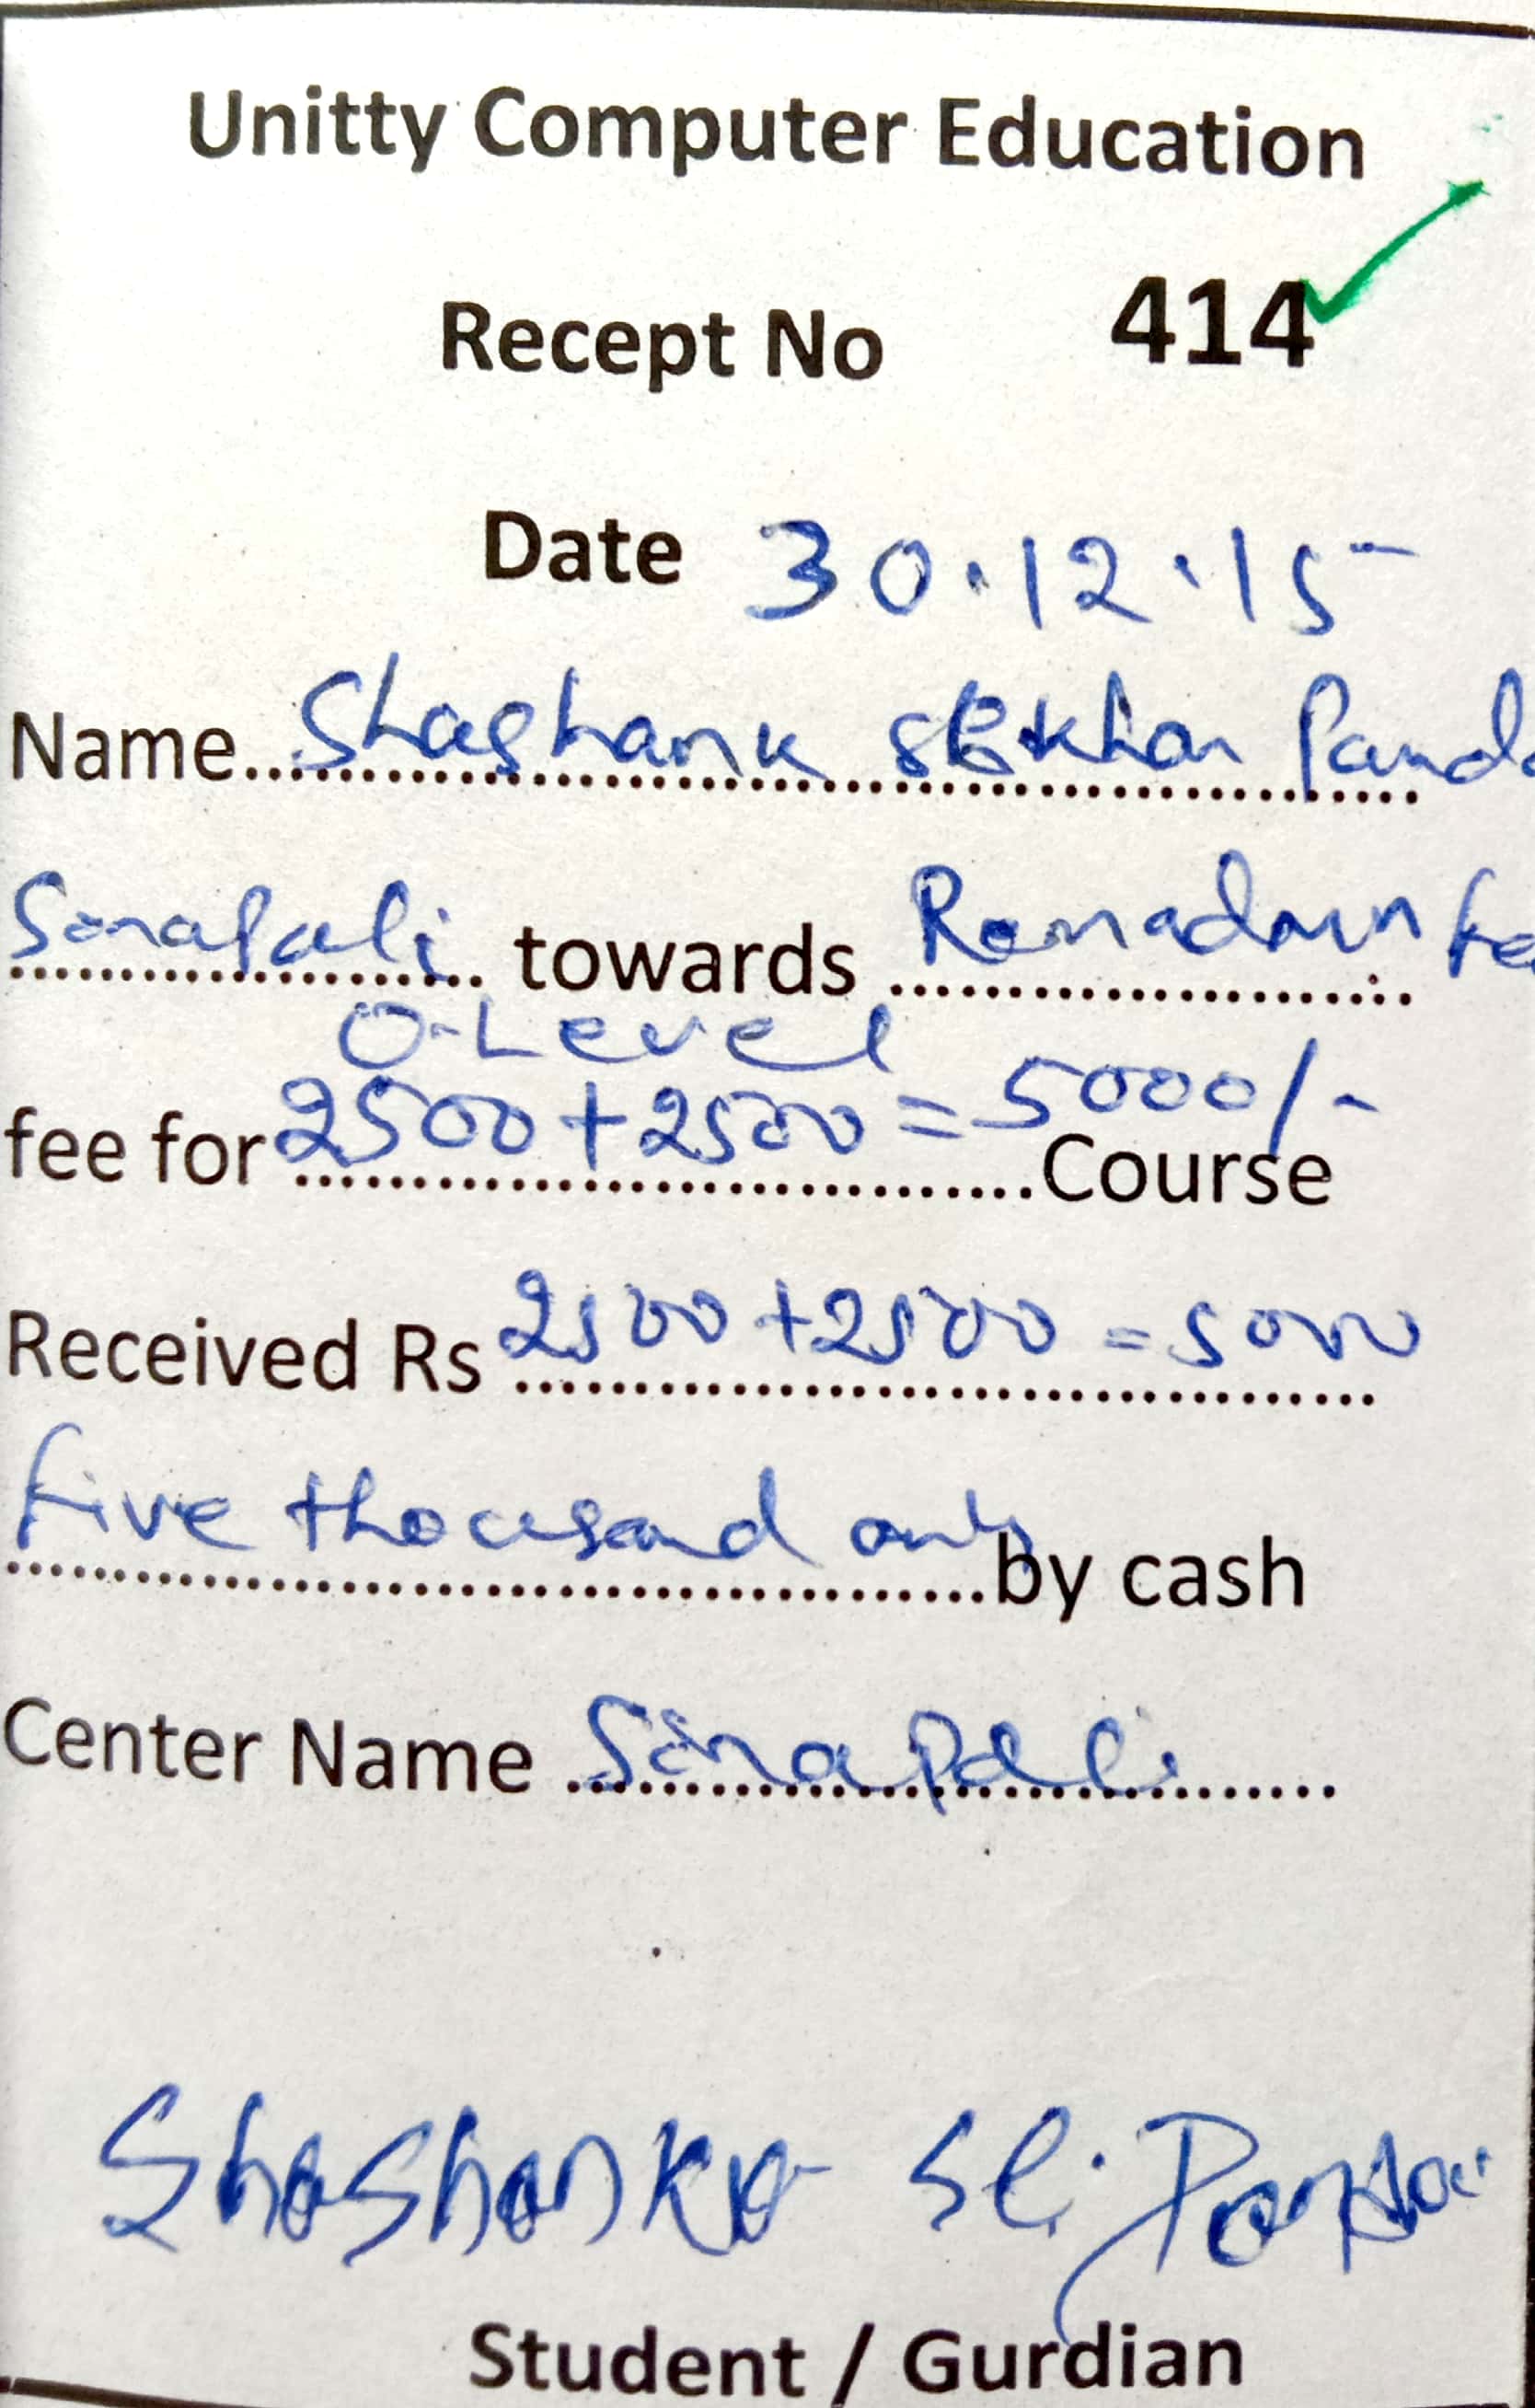 Unitty Computer Education
Recept No 414
Date 30.12.15
Name Shashank Sekhar Panda
Sinapali towards
O-Level
fee for 2500+2500=5000/- Course
Received Rs 2500+2500=5000
five thousand only by cash
Center Name Sinapali
Shashanka Panda
Student / Gurdian